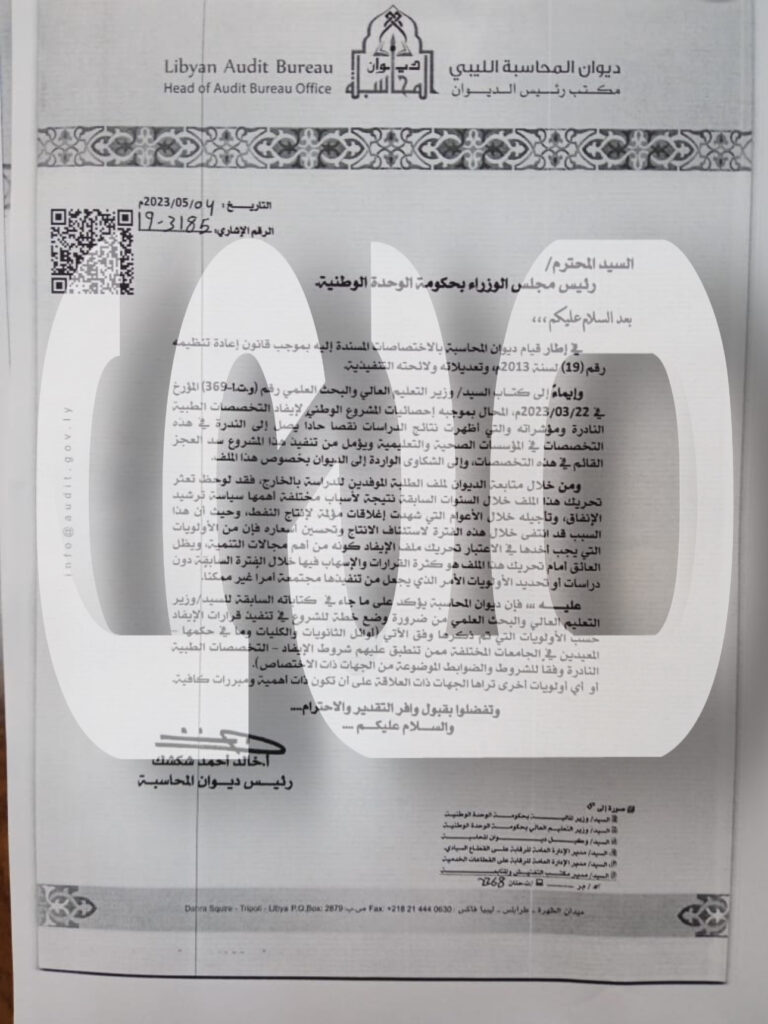 Libyan Audit Bureau
Head of Audit Bureau Office
ديوان المحاسبة
ديوان المحاسبة الليبي
مكتب رئيس الديوان
التاريخ: 2023/05/04م
الرقم الإشاري: 19-3185
السيد المحترم/
رئيس مجلس الوزراء بحكومة الوحدة الوطنية.
بعد السلام عليكم ،،،
في إطار قيام ديوان المحاسبة بالاختصاصات المسندة إليه بموجب قانون إعادة تنظيمه
رقم (19) لسنة 2013م، وتعديلاته ولائحته التنفيذية.
وإيماءً إلى كتاب السيد/ وزير التعليم العالي والبحث العلمي رقم (وت1-369) المؤرخ
في 2023/03/22م، المحال بموجبه إحصائيات المشروع الوطني لإيفاد التخصصات الطبية
النادرة ومؤشراته والتي أظهرت نتائج الدراسات نقصا حادا يصل إلى الندرة في هذه
التخصصات في المؤسسات الصحية والتعليمية ويؤمل من تنفيذ هذا المشروع سد العجز
القائم في هذه التخصصات، وإلى الشكاوى الواردة إلى الديوان بخصوص هذا الملف.
ومن خلال متابعة الديوان لملف الطلبة الموفدين للدراسة بالخارج، فقد لوحظ تعثر
تحريك هذا الملف خلال السنوات السابقة نتيجة لأسباب مختلفة أهمها سياسة ترشيد
الإنفاق، وتأجيله خلال الأعوام التي شهدت إغلاقات مؤلمة لإنتاج النفط، وحيث أن هذا
السبب قد انتفى خلال هذه الفترة لاستئناف الانتاج وتحسين أسعاره فإن من الأولويات
التي يجب أخذها في الاعتبار تحريك ملف الإيفاد كونه من أهم مجالات التنمية، ويظل
العائق أمام تحريك هذا الملف هو كثرة القرارات والإسهاب فيها خلال الفترة السابقة دون
دراسات أو تحديد الأولويات الأمر الذي يجعل من تنفيذها مجتمعة أمرا غير ممكنا.
عليه ،،، فإن ديوان المحاسبة يؤكد على ما جاء في كتاباته السابقة للسيد/وزير
التعليم العالي والبحث العلمي من ضرورة وضع خطة للشروع في تنفيذ قرارات الإيفاد
حسب الأولويات التي تم ذكرها وفق الآتي (أوائل الثانويات والكليات وما في حكمها –
المعيدين في الجامعات المختلفة ممن تنطبق عليهم شروط الإيفاد – التخصصات الطبية
النادرة وفقا للشروط والضوابط الموضوعة من الجهات ذات الاختصاص).
أو أي أولويات أخرى تراها الجهات ذات العلاقة على أن تكون ذات أهمية ومبررات كافية.
وتفضلوا بقبول وافر التقدير والاحترام....
والسلام عليكم ....
أ.خالد أحمد شكشك
رئيس ديوان المحاسبة
info@audit.gov.ly
صورة إلى
السيد/ وزير المالية بحكومة الوحدة الوطنية
السيد/ وزير التعليم العالي بحكومة الوحدة الوطنية
السيد/ وكيل ديوان المحاسبة
السيد/ مدير الإدارة العامة للرقابة على القطاع السيادي.
السيد/ مدير الإدارة العامة للرقابة على القطاعات الخدمية
السيد/ مدير مكتب التفتيش والمتابعة
ميدان الظهرة ـ طرابلس ـ ليبيا فاكس : Fax: +218 21 444 0630 ص.ب Dahra Squire - Tripoli - Libya P.O.Box: 2879